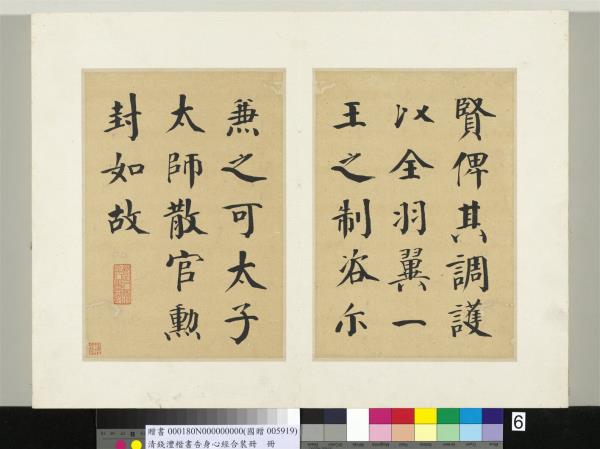 賢俾其調護
以全羽翼一
王之制咨尔
兼之可太子
太師散官勲
封如故
贈書 000180N000000000(國贈 005919)
清錢灃楷書告身心經合裝冊 冊
6